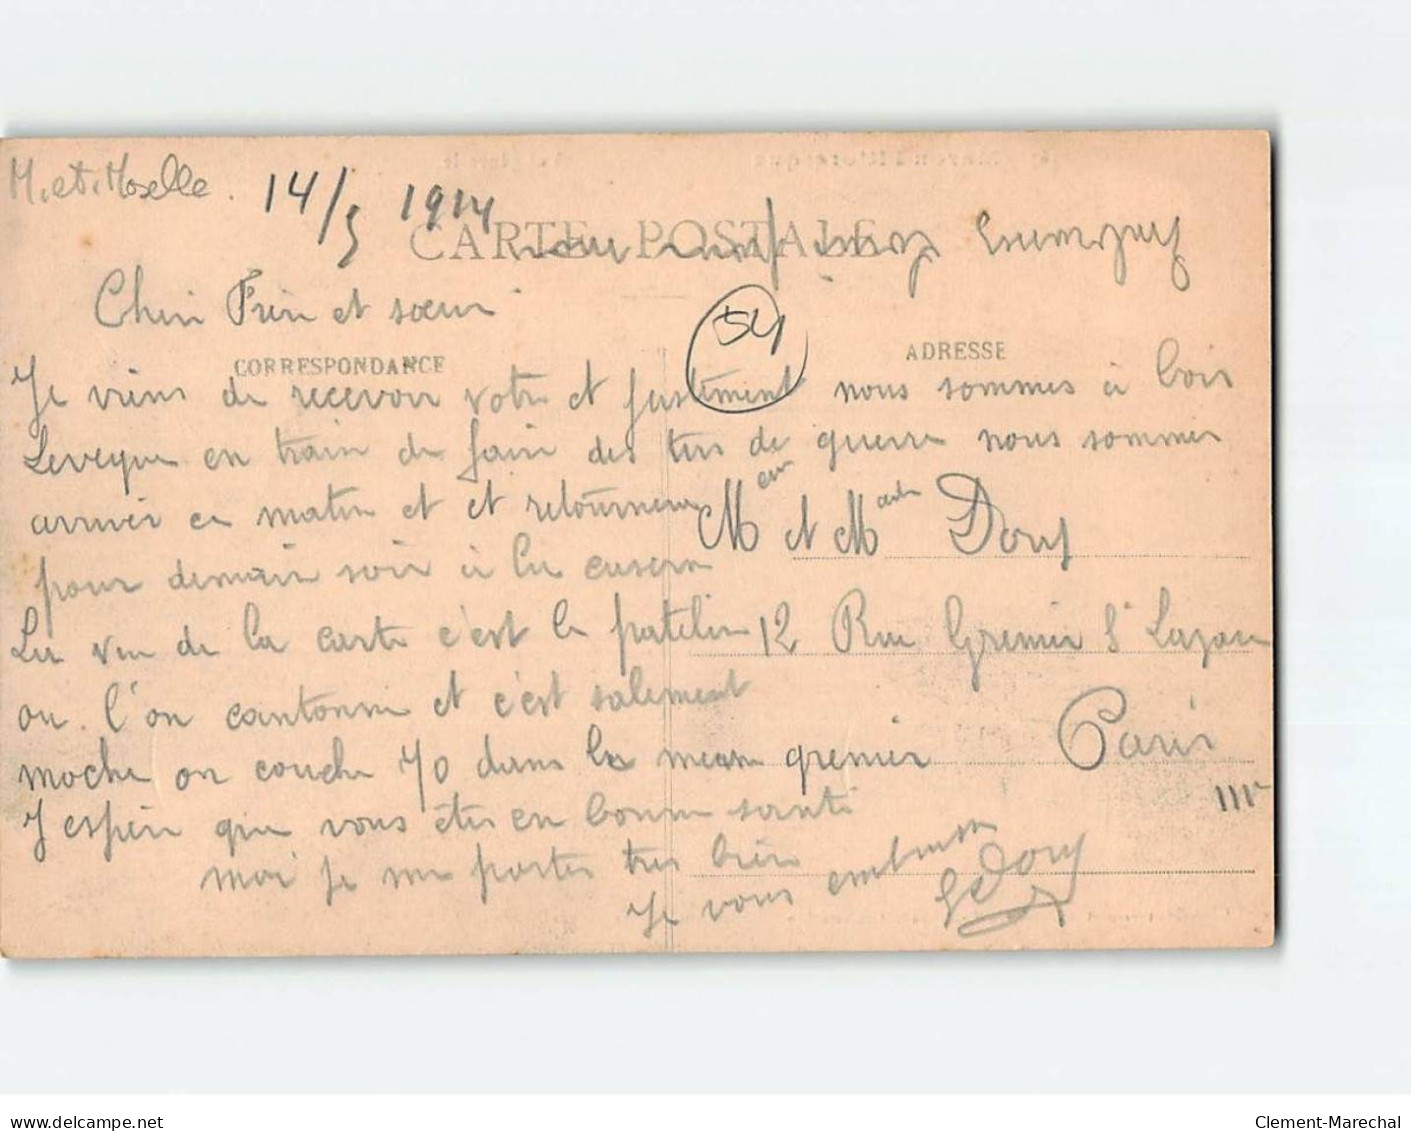 M. et. Moselle. 14/5 1914
CARTE POSTALE
Cher Frère et sœur
54
CORRESPONDANCE
ADRESSE
Je viens de recevoir votre et justement nous sommes à bois
Leveque en train de faire des tirs de guerre nous sommes
arriver ce matin et et retournerons
pour demain soir à la caserne
La vue de la carte c'est le patelin
ou l'on cantonne et c'est salement
moche on couche 70 dans le meme grenier
J'espère que vous êtes en bonne santé
moi je me portes tres bien
Je vous embrasse
Meur et Made Dory
12 Rue Grenier St Lazare
Paris
IIIe
G Dory
delcampe.net
Clement-Marechal